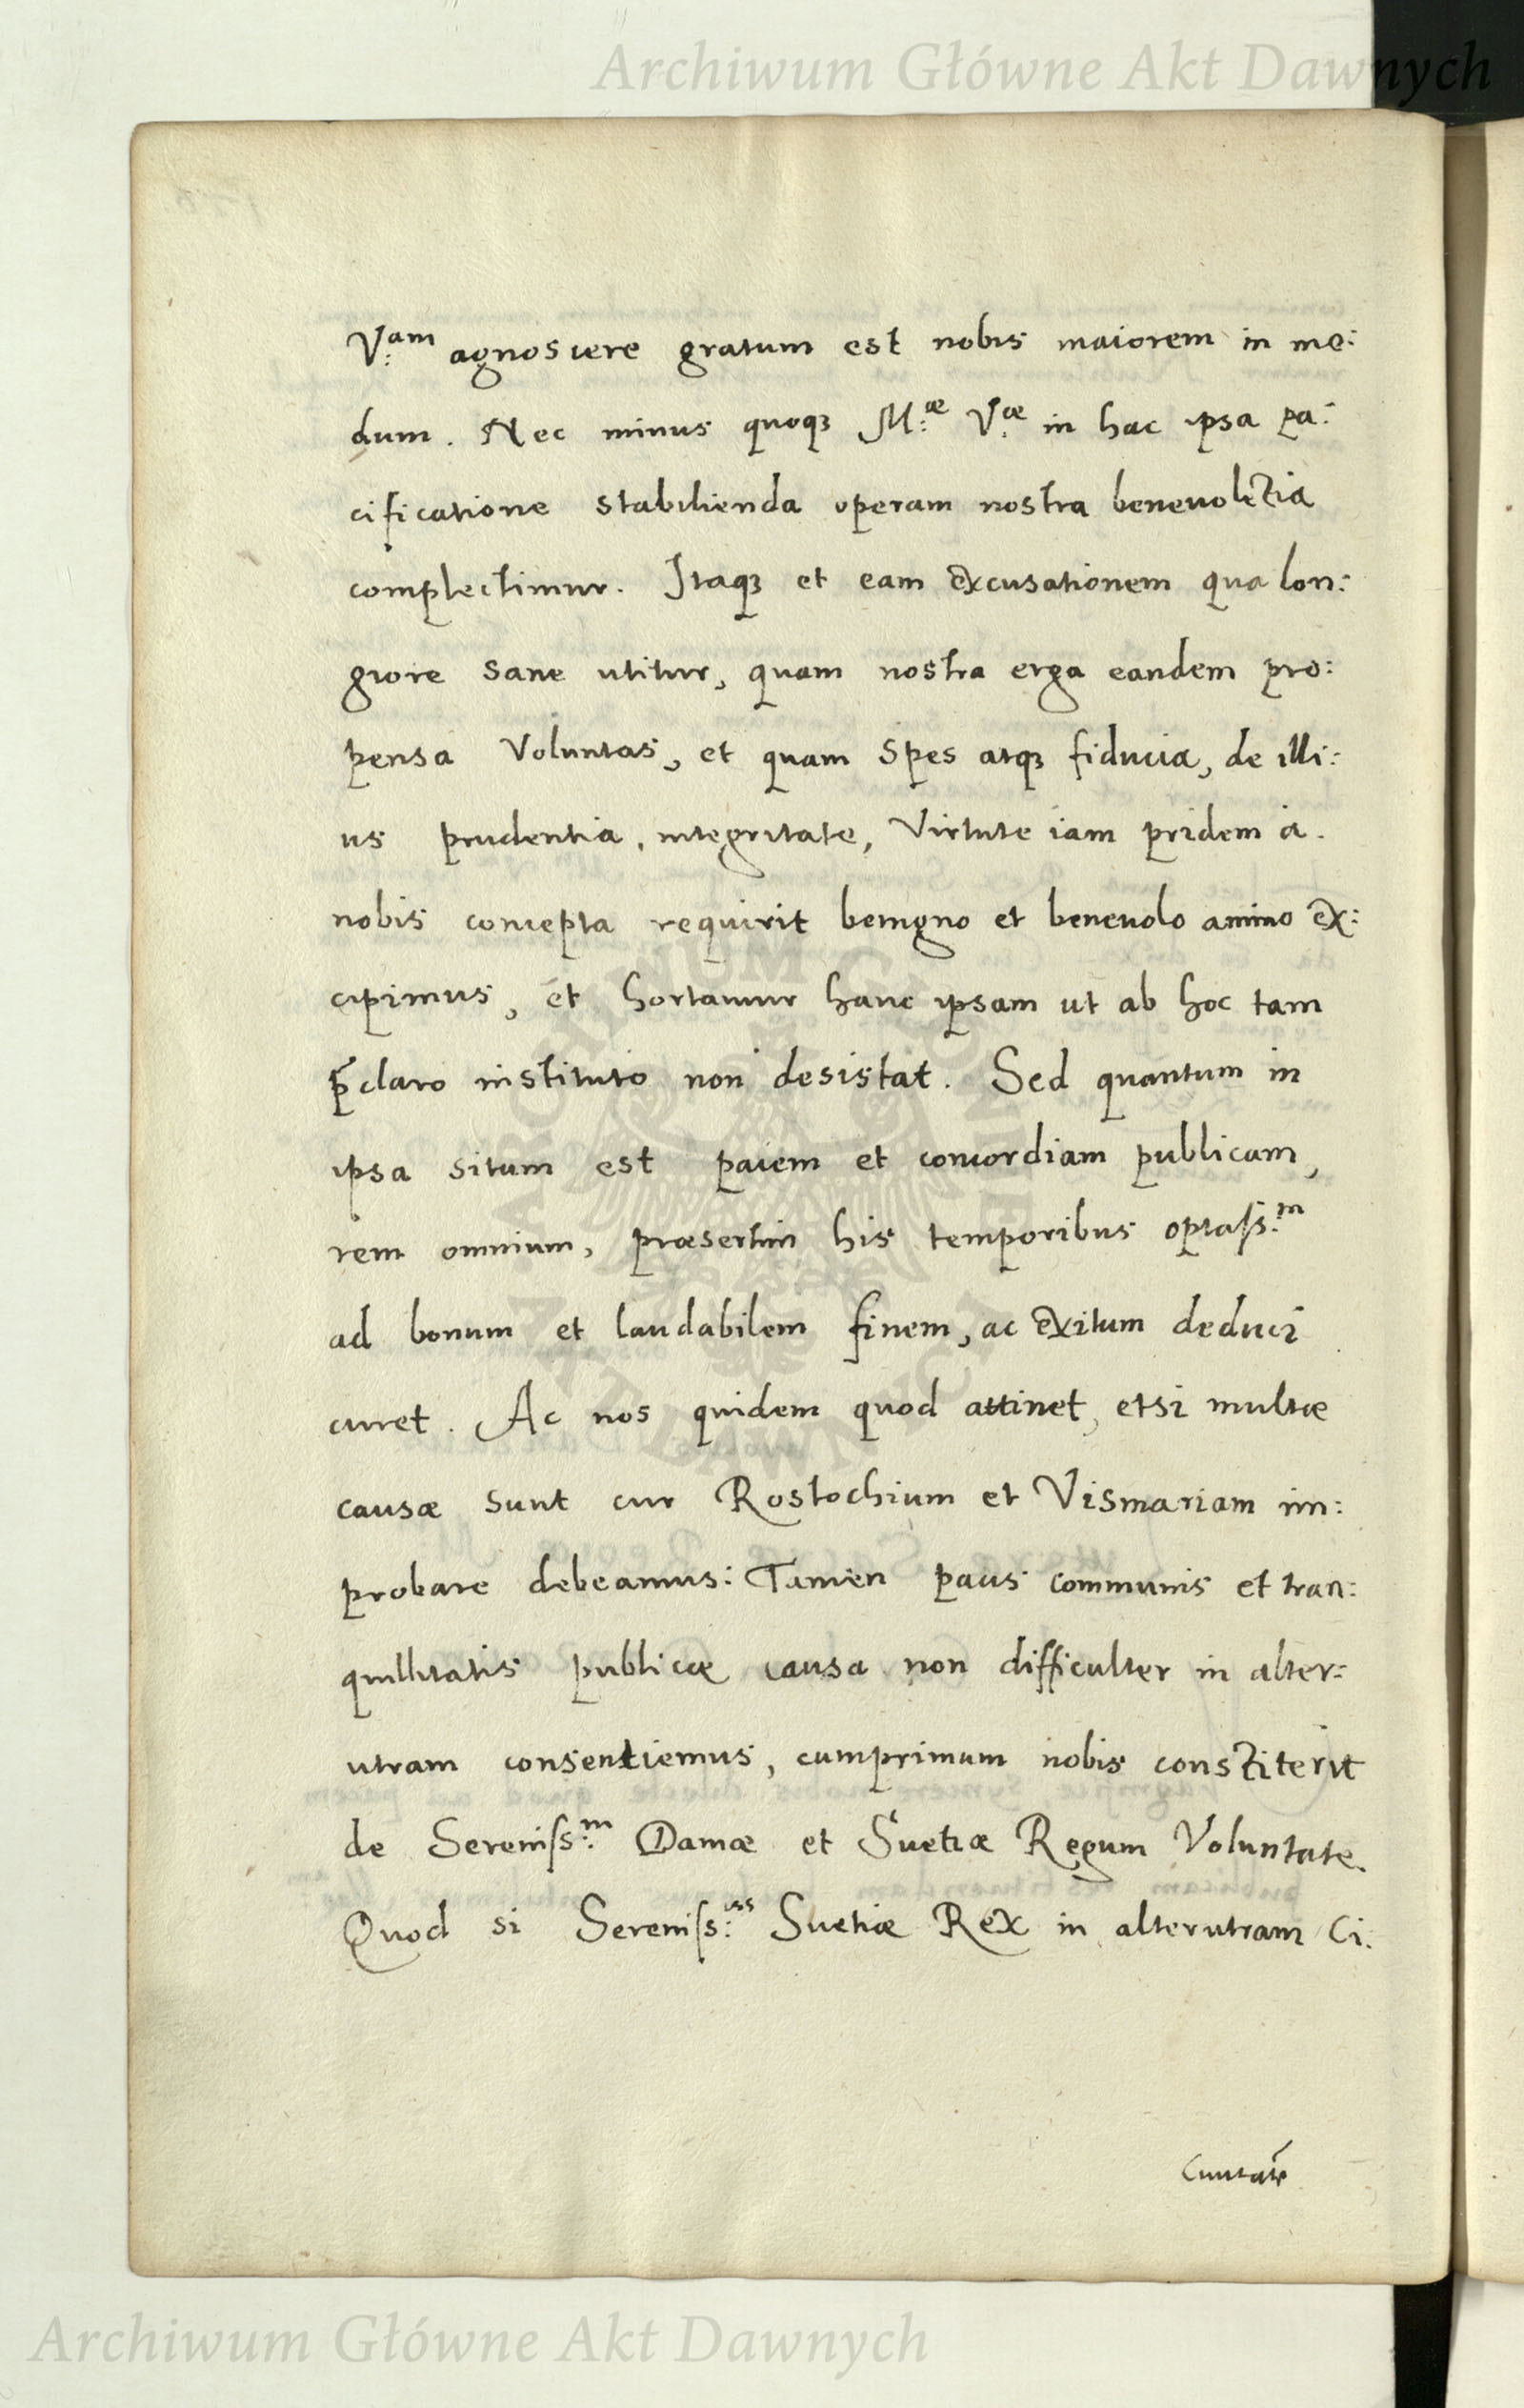 Archiwum Główne Akt Dawnych
V:am agnoscere gratum est nobis maiorem in mo:
dum. Nec minus quoqꝫ M:æ V:æ in hac ipsa pa:
cificatione stabilienda operam nostra beneuolētia
complectimur. Itaqꝫ et eam excusationem qua lon:
giore sane utitur, quam nostra erga eandem pro:
pensa Voluntas, et quam spes atqꝫ fiducia, de illi:
us prudentia, integritate, Virtute iam pridem a
nobis concepta requirit benigno et beneuolo animo ex:
cipimus, et hortamur hanc ipsam ut ab hoc tam
p̄claro instituto non desistat. Sed quantum in
ipsa situm est pacem et concordiam publicam,
rem omnium, præsertim his temporibus optaſs:m
ad bonum et laudabilem finem, ac exitum deduci
curet. Ac nos quidem quod attinet, etsi multæ
causæ sunt cur Rostochium et Vismariam im:
probare debeamus: Tamen pacis communis et tran:
quillitatis publicæ causa non difficulter in alter:
utram consentiemus, cumprimum nobis constiterit
de Sereniſs:m Daniæ et Suetiæ Regum Voluntate.
Quod si Sereniſs:us Suetiæ Rex in alterutram Ci:
Ciuitatē
ARCHIWUM GŁÓWNE AKT DAWNYCH
Archiwum Główne Akt Dawnych